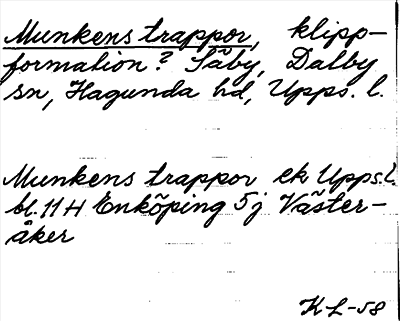 Munkens trappor, klipp-
formation? Säby, Dalby
sn, Hagunda hd, Upps. l.
Munkens trappor ek Upps.l.
bl. 11 H Enköping 5j Väster-
åker
KL-58